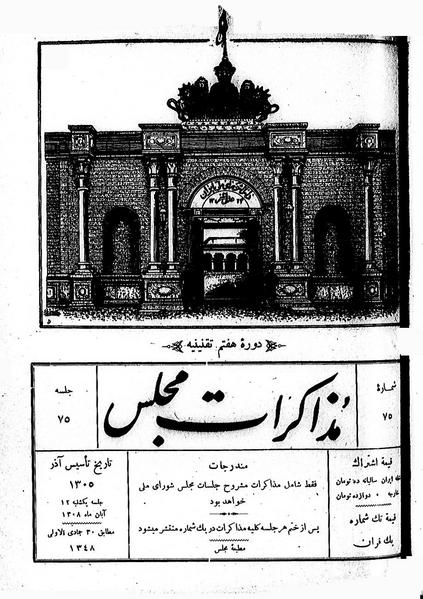 دورهٔ هفتم تقنینیه
شمارهٔ
۷۵
مذاکرات مجلس
جلسه
۷۵
قیمة اشتراک
ایران سالیانه ده تومان
خارجه » دوازده تومان
قیمة تک شماره
یک قران
مندرجات
فقط شامل مذاکرات مشروح جلسات مجلس شورای ملی
خواهد بود
پس از ختم هر جلسه کلیه مذاکرات در یک شماره منتشر میشود
مطبعهٔ مجلس
تاریخ تأسیس آذر
۱۳۰۵
جلسه یکشنبه ۱۲
آبان ماه ۱۳۰۸
مطابق ۳۰ جمادی الاولی
۱۳۴۸